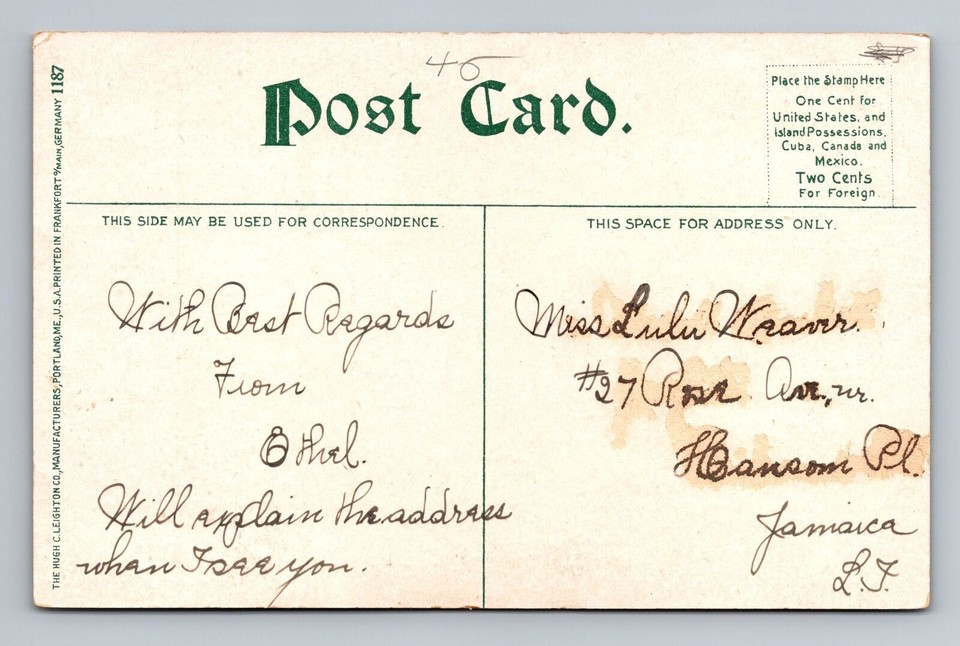 45
Post Card.
Place the Stamp Here
One Cent for
United States, and
Island Possessions,
Cuba, Canada and
Mexico.
Two Cents
For Foreign.
THE HUGH C. LEIGHTON CO., MANUFACTURERS, PORTLAND, ME., U.S.A. PRINTED IN FRANKFORT o/MAIN, GERMANY 1187
THIS SIDE MAY BE USED FOR CORRESPONDENCE.
With Best Regards
From
Ethel.
Will explain the address
when I see you.
THIS SPACE FOR ADDRESS ONLY.
Miss Lulu Weaver.
#27 Rose Ave., nr.
Hansom Pl.
Jamaica
L.I.